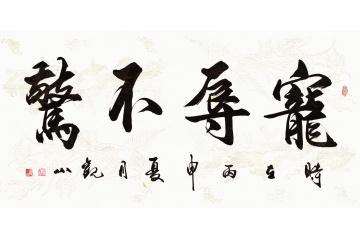 寵辱不驚
時在丙申夏月觀山